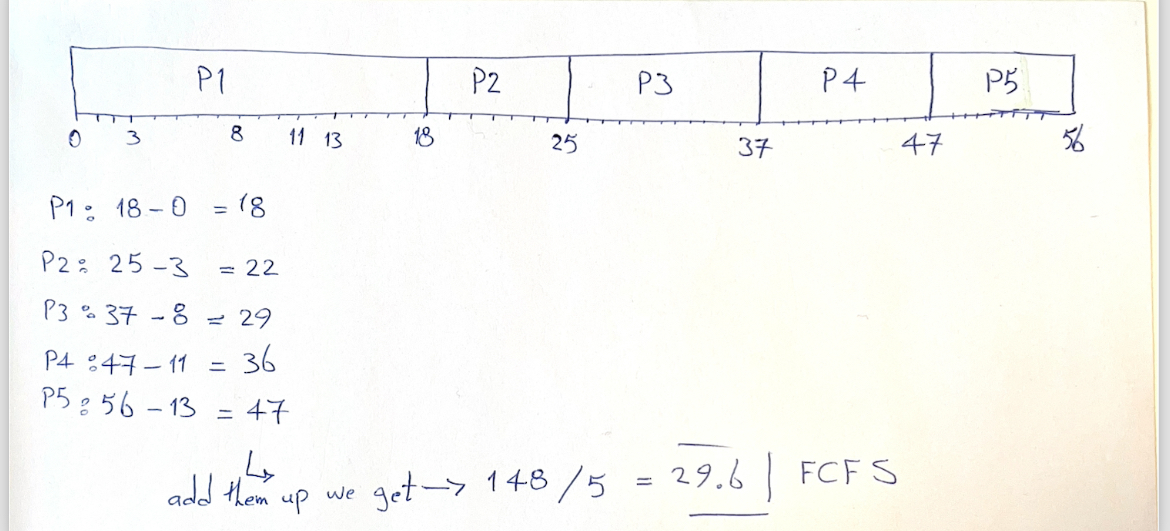 P1 P2 P3 P4 P5
0 3 8 11 13 18 25 37 47 56
P1: 18 - 0 = 18
P2: 25 - 3 = 22
P3: 37 - 8 = 29
P4: 47 - 11 = 36
P5: 56 - 13 = 47
↳
add them up we get → 148 / 5 = 29.6 | FCFS